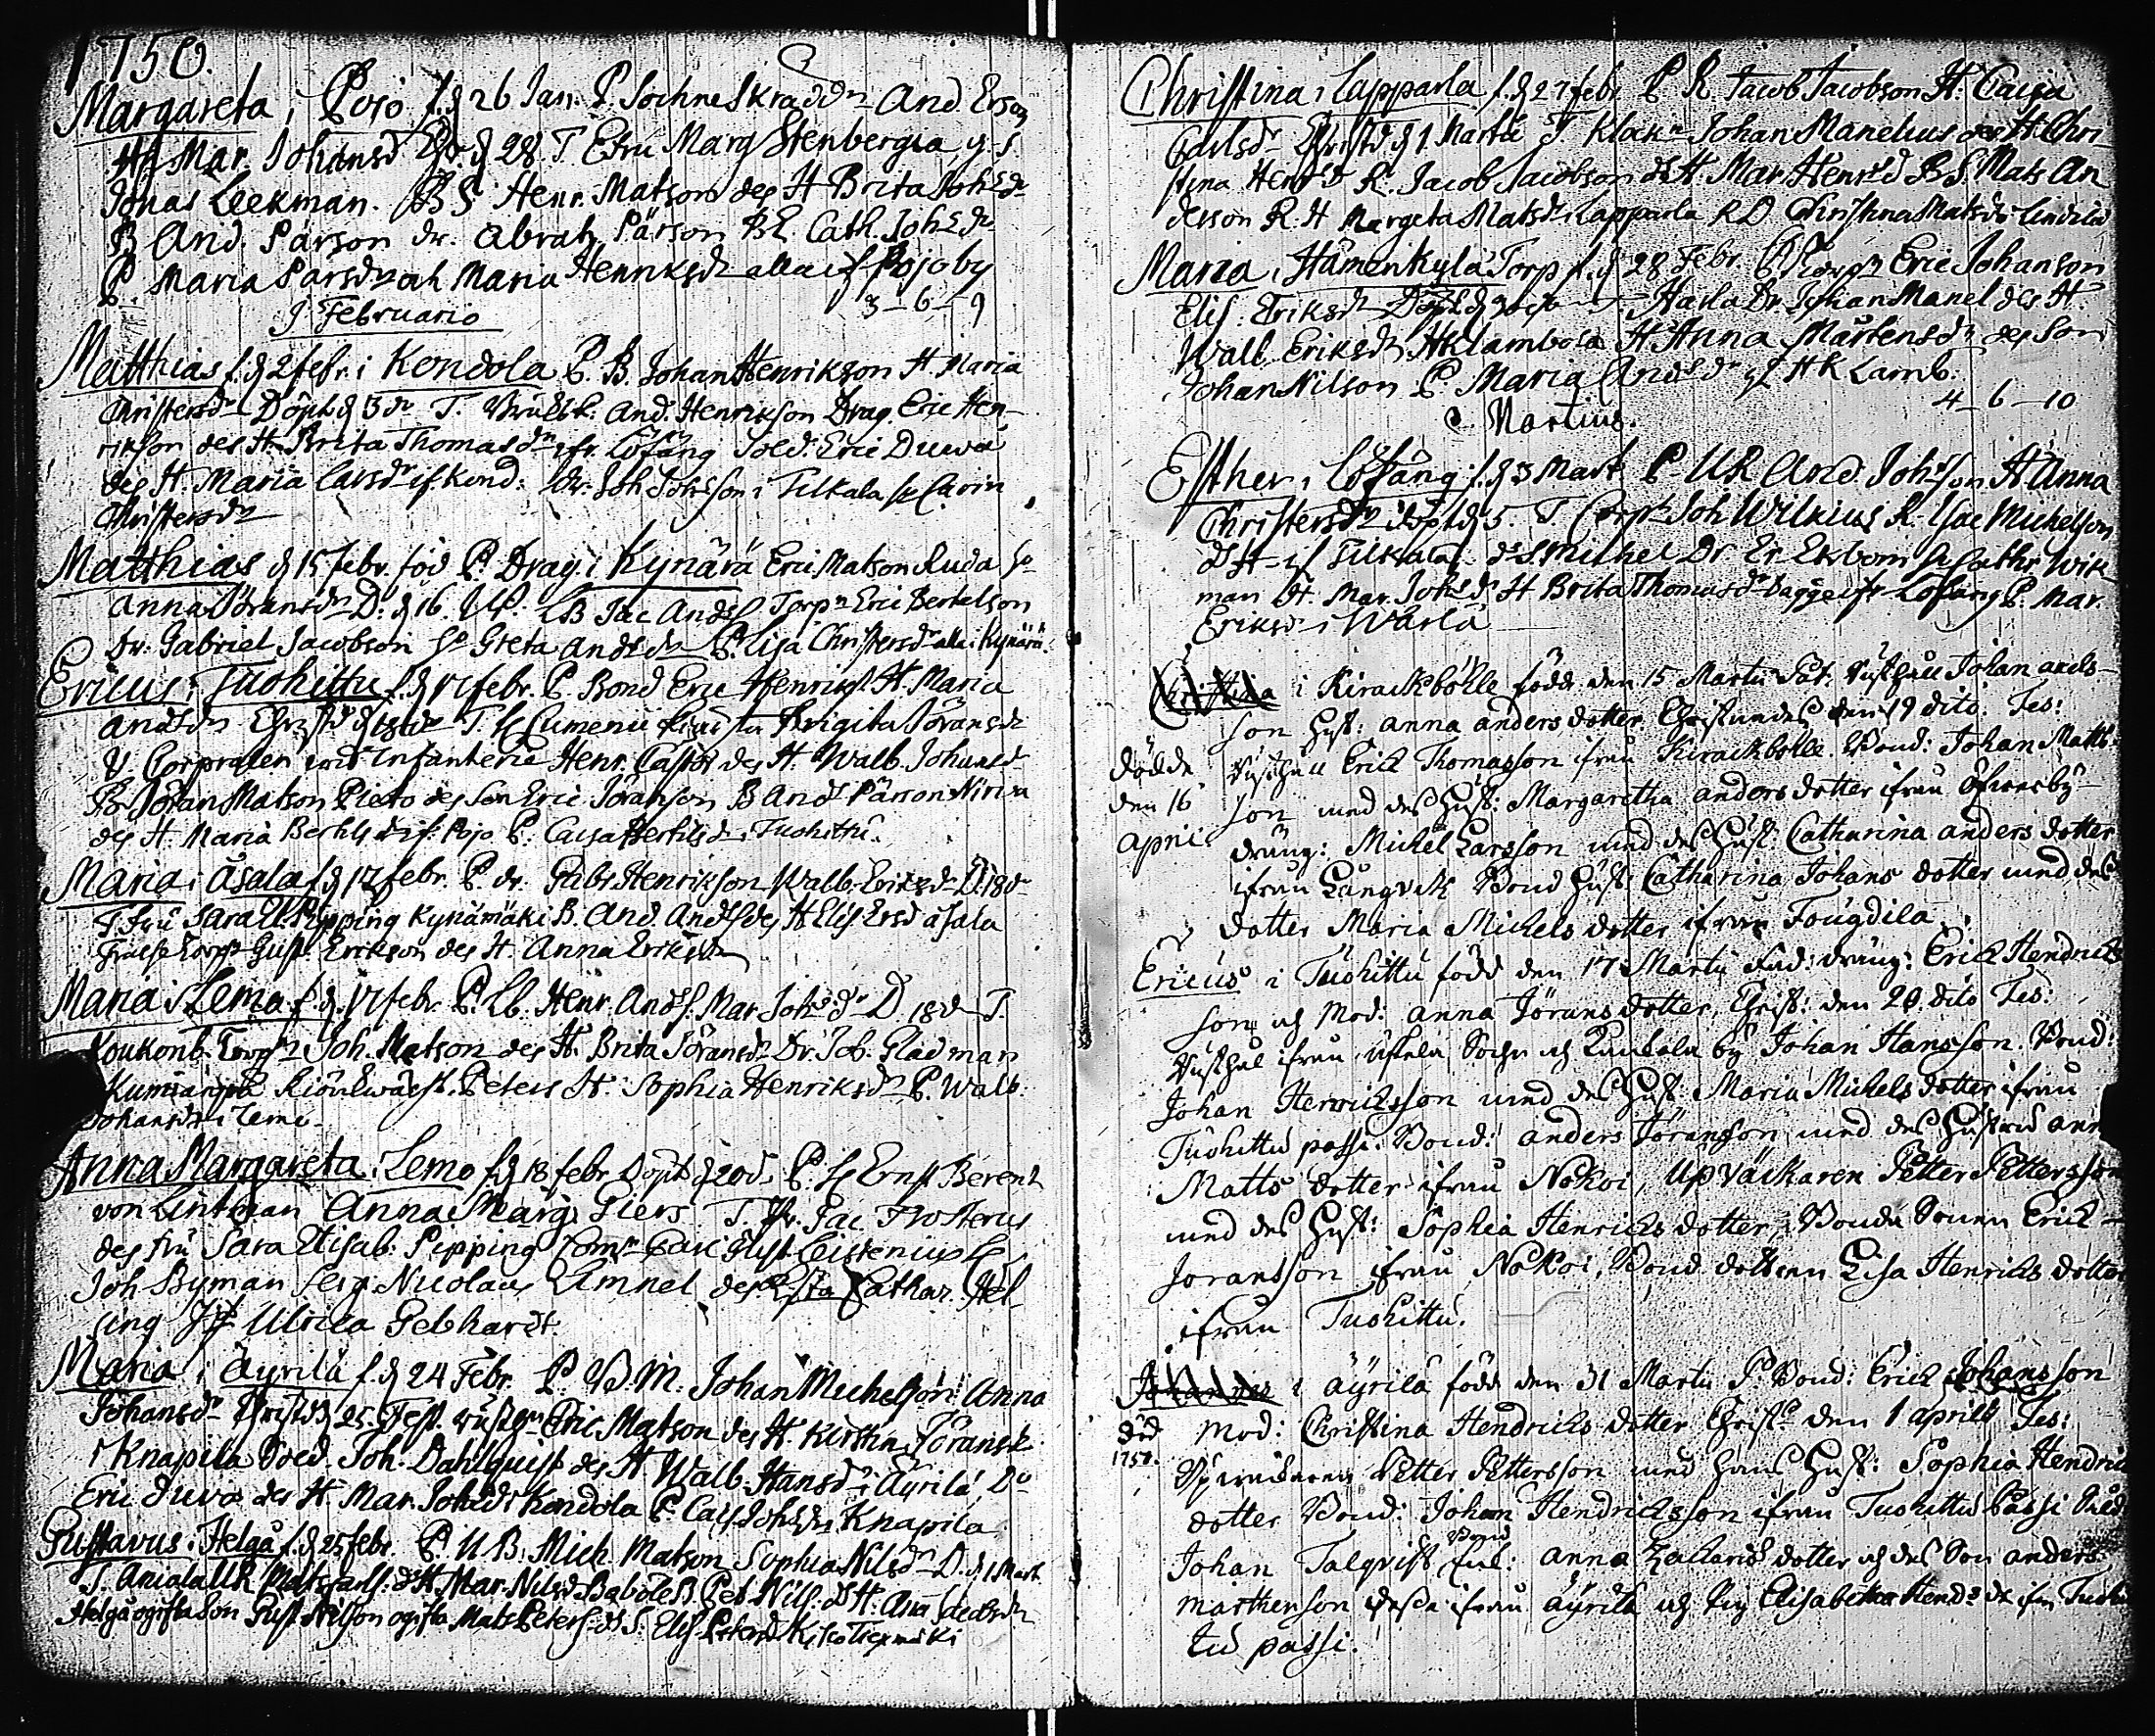 1750.
Margareta i Pojo f. d 26 Jan. P. Sochne Skraddn And. Erson
H. Mar. Johansdr Chr. d 28. T. Efru Marg Stenbergia, g. s.
Jonas Leekman. B S Henr. Matson des H Brita Johsdr
B And. Pärson dr. Abrah. Pärson BE. Cath. Johsdr
P. Maria Parsdr och Maria Henriksdr alla if Pojo by
3-6-9
J Februario
Matthias f. d 2 febr. i Kondola P. B. Johan Henrikson H. Maria
Christersdr Döpt. d 3dr T. And. Henrikson Drag. Eric Hen-
rikson des H. Brita Thomasdr ifr. Löfäng Sold. Eric Duwa
des H. Maria Carsdr if. Kond: Dr. Joh Johsson i Tilkala Carin
Christersdr
Matthias d 15 febr. föd P. Drag. i Kynärä Eric Matson Ruda
Anna Jöransdr D. d 16. LB Jac Ands Torpr Eric Bertelson
Dr. Gabriel Jacobson Greta Andsdr P. Lisa Christersdr alla i Kynärä.
Ericus i Tuohittu f. d 17 febr. P. Bond Eric Henriks. H. Maria
Andsdr Christd d 18dr T. Cumenii Brigita Jöransdr
V. Corpralen wid Infanterie Henr. Castor des H. Walb. Johansdr
B. Jöran Matson Pleto des Son Eric Jöranson B And Pärson Nirin
des H. Maria Berhlsdr if: Pojo P: Caisa Bertilsdr i Tuohittu.
Maria i Åsala f d 17 febr. P. dr. Gabr. Henrikson Walb. Eriksdr D. 18dr
T. Fru Sara El. Pipping Kynämäki B. And. Ands des H Elis Ersd åsala
Frälse Torpr Gust. Erikson des H. Anna Eriksdr
Maria i Lemo f. d. 17 febr. P. Lb. Henr. Ands. Mar. Johsdr D. 18dr T.
Koukonb. Torpr Joh. Matson des H. Brita Jöransdr Dr. Job. Gladman
Kumianpä Peters H. Sophia Henriksdr P. Walb.
Johansdr i Lemo.
Anna Margareta i Lemo f d 18 febr. Döpt d 20d. P. Ernst Berent
von Lintman Anna Marg. Piers T. Pr. Jac. Frosterus
des fru Sara Elisab: Pipping Comr Carl Gust. Leistenius
Joh Byman Serg. Nicolaus Limnel des Cathar. Hel-
sing Jf Ulrica Gebhardt.
Maria i Äyrilä f. d 24 Febr. P. B. M. Johan Michelson Anna
Johansdr Christ d 25. Test. rusthr Eric Matson des H. Kirstin Jöransdr
i Knapila Soed. Joh. Dahlquist des H Walb. Hansdr i Äyrilä, Do
Eric Duvo des H. Mar. Johsdr i Kondola P. Cais Johsdr i Knapila.
Gustavus i Helgå f. d 25 febr. P. U B. Mich. Matson Sophia Nilsdr D. d 1 Mart.
T. Aniala UR Mats Carls: ds H. Mar. Nilsdr Baböle B. Pet Nils. ds H. Ann Jacobsdr
Helgå ogifta Son Gust Nilson ogifta Mats Peters ds S. Elis Petersdr Kiskolieximäki
Christina i Lapparla f. d 27 febr P. R. Jacob Jacobson H. Caisa
Carlsdr Christd d 1 Martii T. Klockr Johan Manelius des H. Chri-
stina Hensdr R. Jacob Jacobson ds H. Mar. Hensd B S. Mats An
derson R. H Margeta Matsdr i Lapparla R D Christina Matsdr Lindila
Maria i Hämenkylä Torp f. d 28 Febr. P. Torpr Eric Johanson
Elis. Eriksdr Döpt d Harla Dr. Johan Manel des H.
Walb. Eriksdr HKlambola H Anna Mårtensdr des Son
Johan Nilson P. Maria Andsdr if HK Lamb.
4-6-10
Martius.
Esther i Löfäng f. d 3 Mart P UR And. Johson H Anna
Christersdr döpt d 5. T. Corpr Joh Wilkius R. Isac Michelson
ds H if Tilkala ds S. Michel Dr Er. Ekbom Cathr Wik
man H. Mar. Johsdr H Brita Thomasdr Dagge ifr Löfäng P. Mar.
Eriksdr i Warla
Christina i Kirackbölle född den 15 Martii Pat. Rusthåll Johan axels-
son Hust: anna anders dotter Christnades den 19 dito. Tes:
dödde
den 16
April
Rusthåll Erick Thomasson ifrån Kirackbölle. Bond: Johan Matts-
son med des Hust: Margaretha anders dotter ifrån Öfwerby-
dräng: Michel Larsson med des Hust: Catharina anders dotter
ifrån Långvik Bond Hust: Catharina Johans dotter med des
dotter Maria Michels dotter ifrån Fougdila.
Ericus i Tuohittu född den 17 Martii Fad: dräng: Erick Hendricks
son och Mod: anna Jörans dotter, Christ: den 20. dito Tes:
Rusthål ifrån Uskela Sochn och Kaukola by Johan Hansson. Bond:
Johan Henricksson med des Hust Maria Michels dotter ifrån
Tuohittu passi. Bond: anders Jöransson med des Hustru ann
Matts dotter ifrån Nokoi, Upväckaren Petter Pettersson
med des Hust: Sophia Henricks dotter, Bonde Sonen Erick
Joransson ifrån Nokoi, Bond dottren Lisa Henricks dotter
ifrån Tuohittu.
Johannes i äyrilä född den 31 Martii P. Bond: Erick Johansson
död
1757.
Mod: Christina Hendricks dotter Christ: den 1 aprilis Tes:
Petter Pettersson med hans Hust: Sophia Hendrick
dotter Bond: Johan Hendricksson ifrån Tuohittu Passi Sold
Bond
Johan Talqvist, Enk: anna Zacharis dotter och des Son anders
Marthenson desse ifrån äyrilä och Pig Elisabetha Hends dr ifrn Tuohit
tu passi.